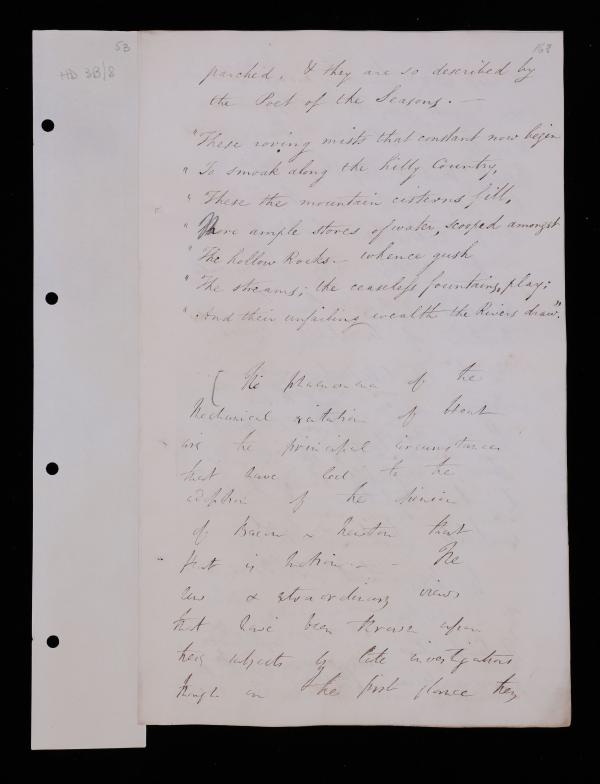 53
168
HD 3B/8
parched, & they are so described by
the Poet of the Seasons. —
"These roving mists that constant now begin
"To smoak along the hilly Country,
"These the mountain cisterns fill,
ample stores of water, scooped amongst
"The hollow Rocks. — whence gush
"The streams; the ceaseless fountains, play;
"And their unfailing wealth the Rivers draw".
[The phaenomena of the
Mechanical excitation of Heat
are the principal circumstances
that have led to the
adoption of the
of Bacon & Newton that
Heat is motion. — The
new & extraordinary views
that have been thrown upon
these subjects by late investigations
though on the first glance they